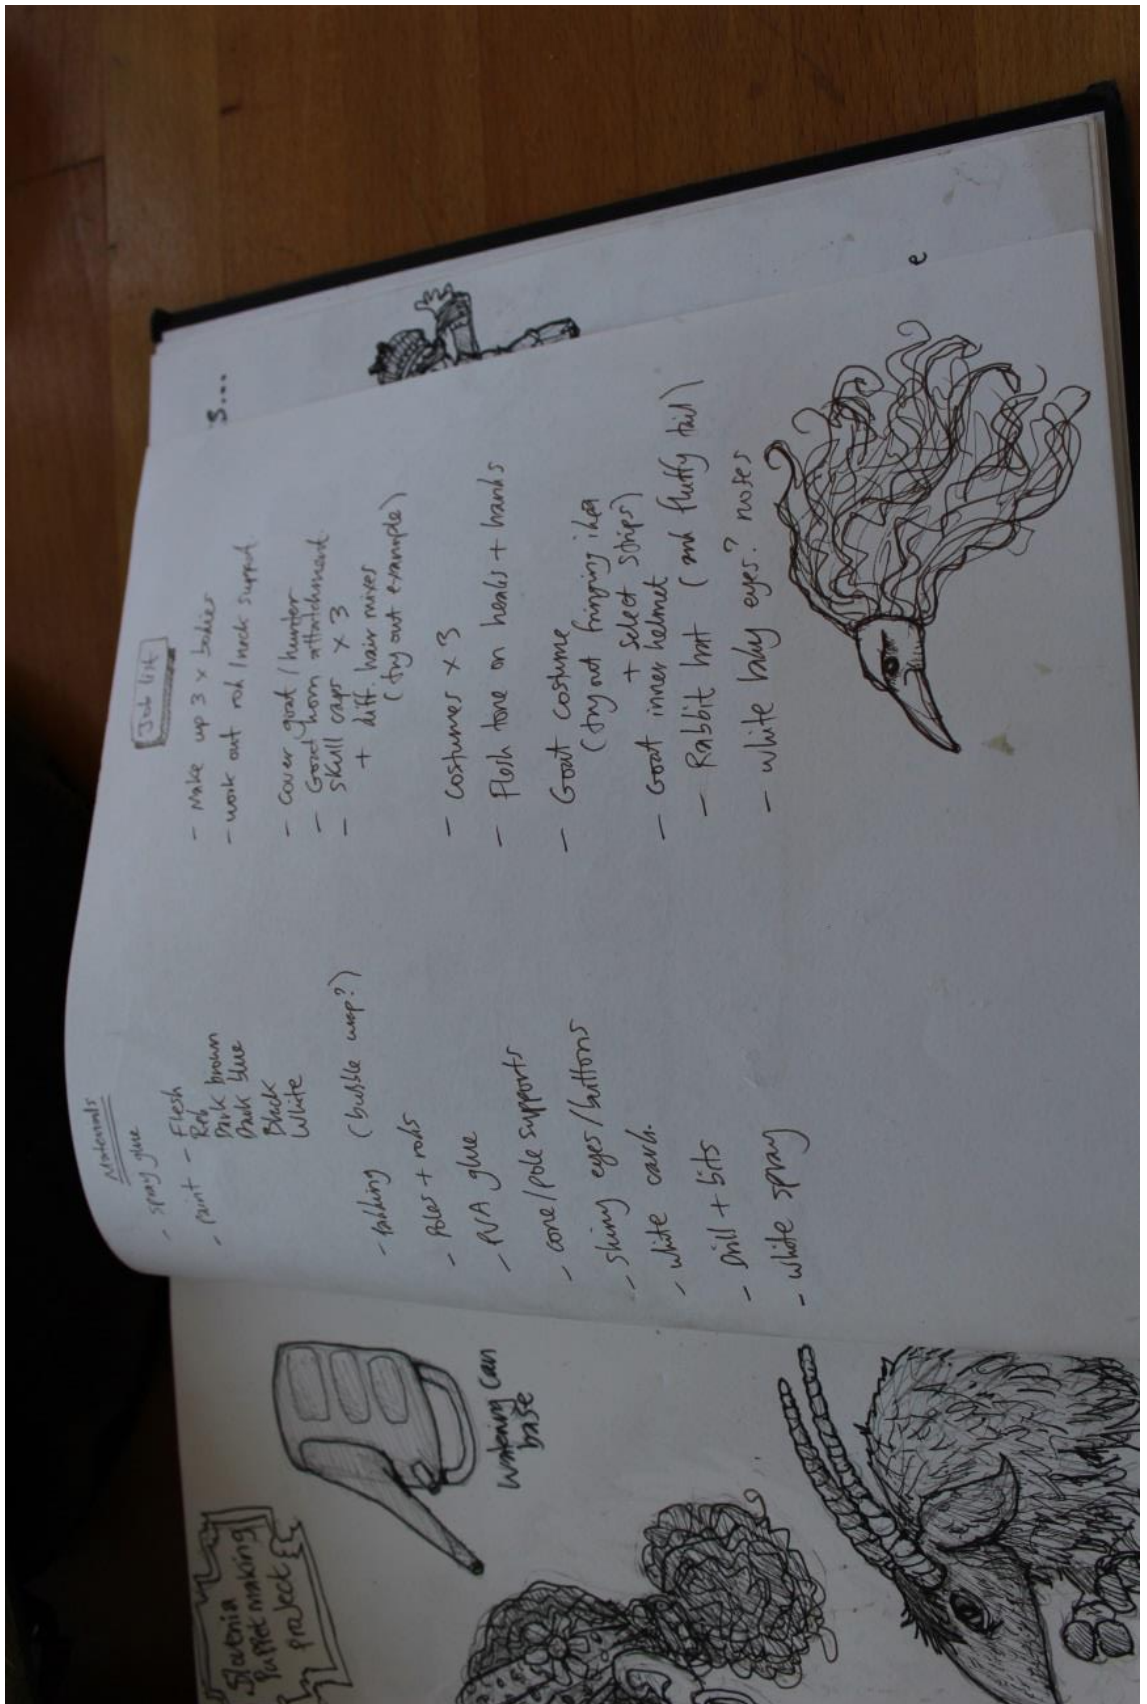 Slovenia
Puppet making
project
Watering can
base
Materials
- spray glue
- Paint - Flesh
Red
Dark brown
Dark blue
Black
White
- Padding (bubble wrap?)
- Poles + rods
- PVA glue
- cone/pole supports
- shiny eyes/buttons
- white card.
- Drill + bits
- white spray
Job list
- Make up 3 x bodies
- work out rod/neck support.
- Cover goat/hunter
- Goat horn attatchment
- skull caps x 3
+ diff. hair mixes
(try out example)
- Costumes x 3
- Flesh tone on heads + hands
- Goat costume
(try out fringing idea
+ select strips)
- Goat inner helmet
- Rabbit hat (and fluffy tail)
- white baby eyes? noses
s...
e